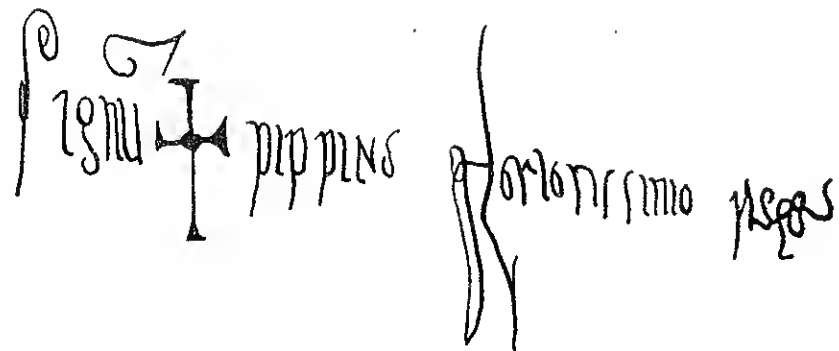 Signū ✝ pippino gloriosissimo rege